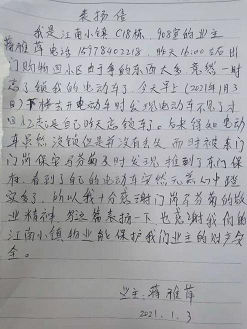 表扬信
我是江南小镇C18栋，908室的业主
蒋雅萍电话15778402218，昨天16:00左右出
门购物回小区由于拿的东西太多竟然一时
忘了锁我的电动车了，今天早上(2021年1月3
日)下楼去开电动车时发现电动车不见了才
回忆是自己昨天忘锁车了。后来得知电动
车虽然没锁但是并没有丢失，而时被东门
门岗保安芬菊及时发现推到了东门保
存，看到了自己的电动车安然无恙心中踏
实多了，所以我十分感谢门岗芬菊的敬
业精神，写这篇表扬一下也感谢我们的
江南小镇物业能保护我们业主的财产安
全。
业主：蒋雅萍
2021.1.3